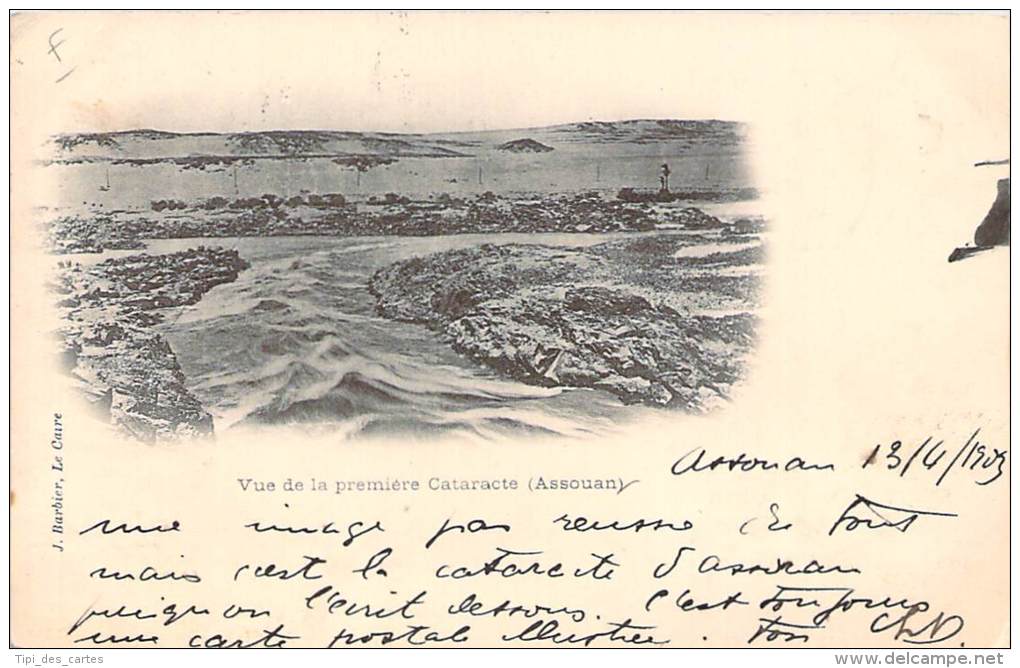 Vue de la première Cataracte (Assouan)
J. Barbier, Le Caire
Assouan 13/4/1903
une image pas reussie du tout
mais c'est la cataracte d'assouan
puisqu'on l'écrit dessous. C'est toujours
une carte postale illustrée. Ton
Tipi_des_cartes
www.delcampe.net